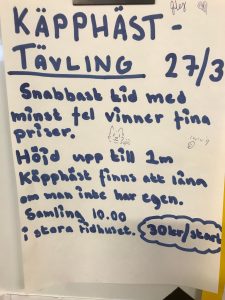 KÄPPHÄST-
TÄVLING 27/3
Snabbast tid med
minst fel vinner fina
priser.
Höjd upp till 1m
Käpphäst finns att låna
om man inte har egen.
Samling 10.00
i stora ridhuset. 30kr/start